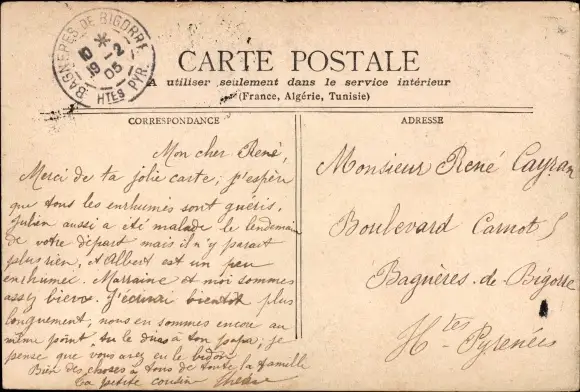 BAGNÈRES DE BIGORRE
10 *
19 -2
05
HTES PYR.
CARTE POSTALE
A utiliser seulement dans le service intérieur
(France, Algérie, Tunisie)
CORRESPONDANCE
Mon cher René,
Merci de ta jolie carte; j'espère
que tous les enrhumés sont guéris,
Julien aussi a été malade le lendemain
de votre départ mais il n'y parait
plus rien, et Albert est un peu
enrhumé. Marraine et moi sommes
assez biens. J'écrirai bientôt plus
longuement, nous en sommes encore au
même point, tu le diras à ton papa; je
pense que vous avez eu le bidon.
Bien des choses à tous de toute la famille
Ta petite cousine
ADRESSE
Monsieur René Cayran
Boulevard Carnot 5
Bagnères-de-Bigorre
Htes Pyrénées